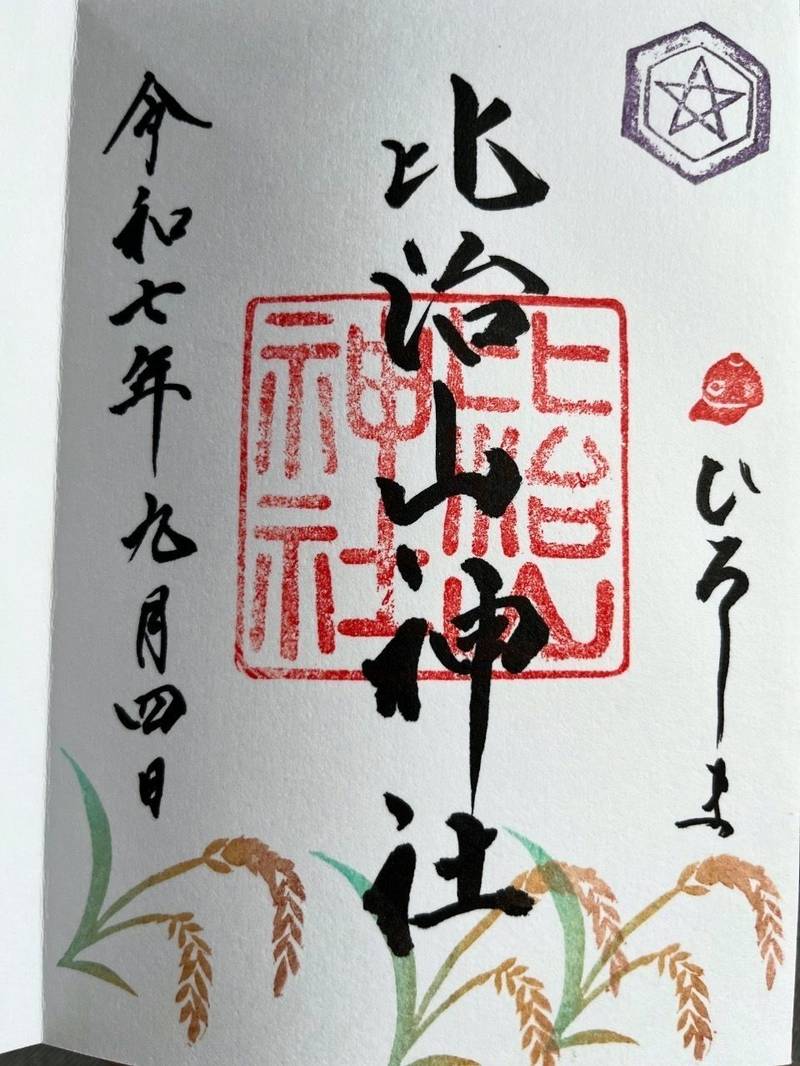 ひろしま
比治山神社
比治山神社
令和七年九月四日